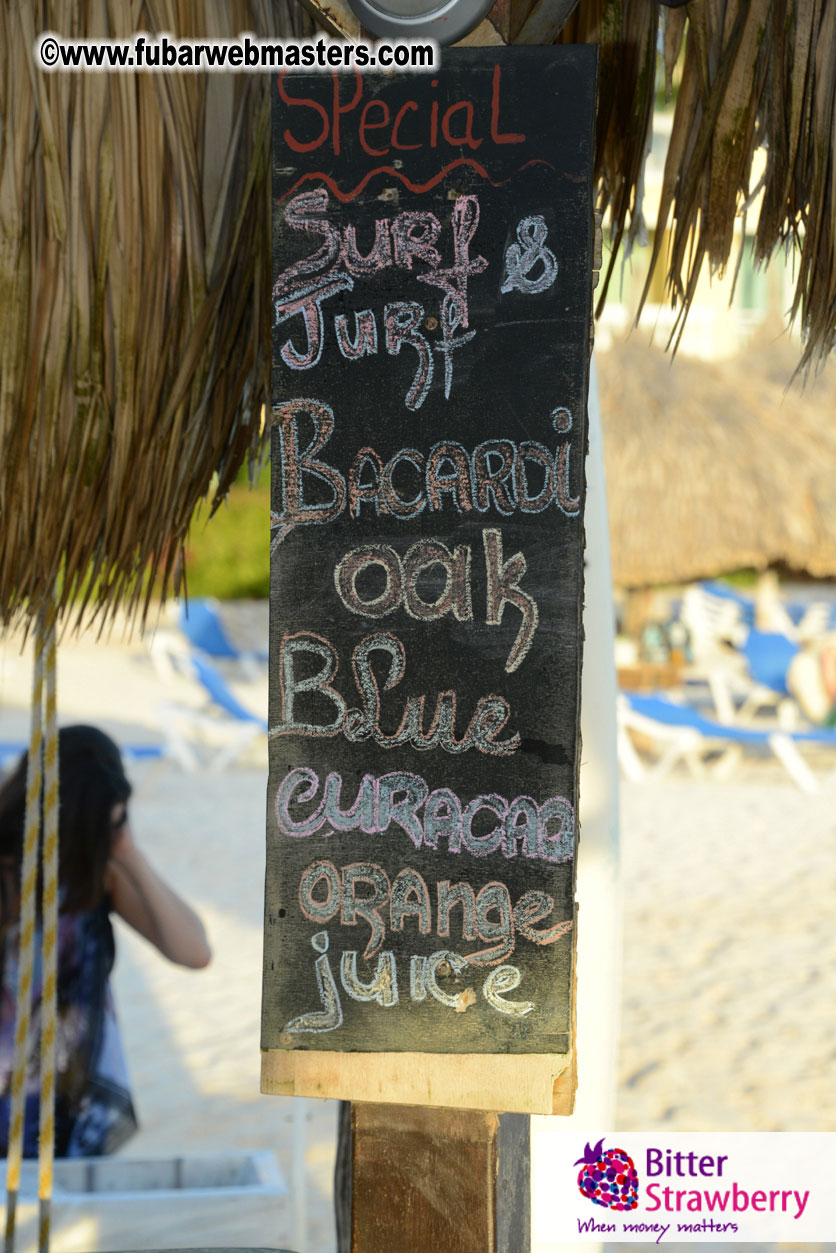 ©www.fubarwebmasters.com
Special
Surf &
Turf
Bacardi
oak
Blue
curacao
orange
juice
Bitter
Strawberry
When money matters